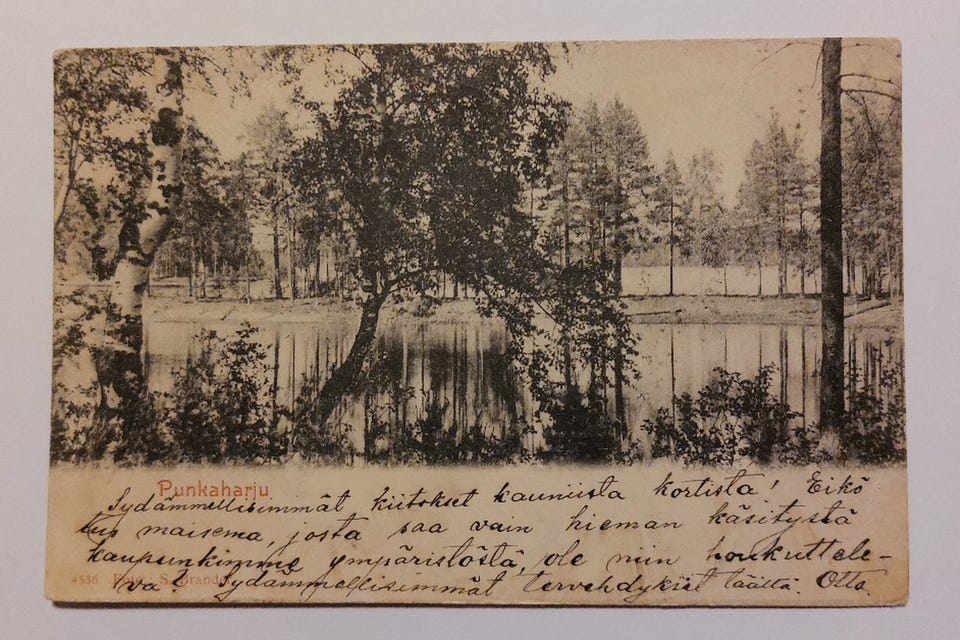 Punkaharju
Sydämmellisimmät kiitokset kauniista kortista! Eikö
maisema, josta saa vain hieman käsitystä
kaupunkimme ympäristöstä, ole niin houkuttele-
va? Sydämmellisimmät tervehdykset täältä. Otto.
4536 Foto. S. Brander